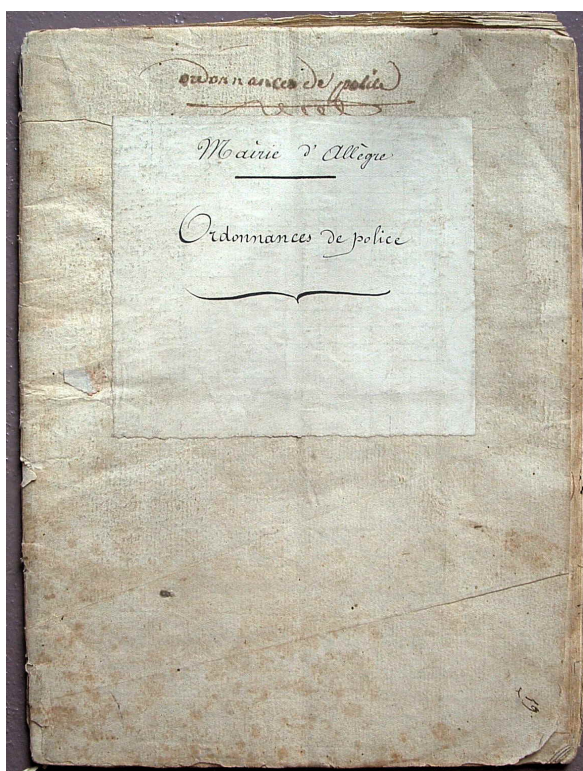 ordonnances de police
Mairie d'Allègre
Ordonnances de police